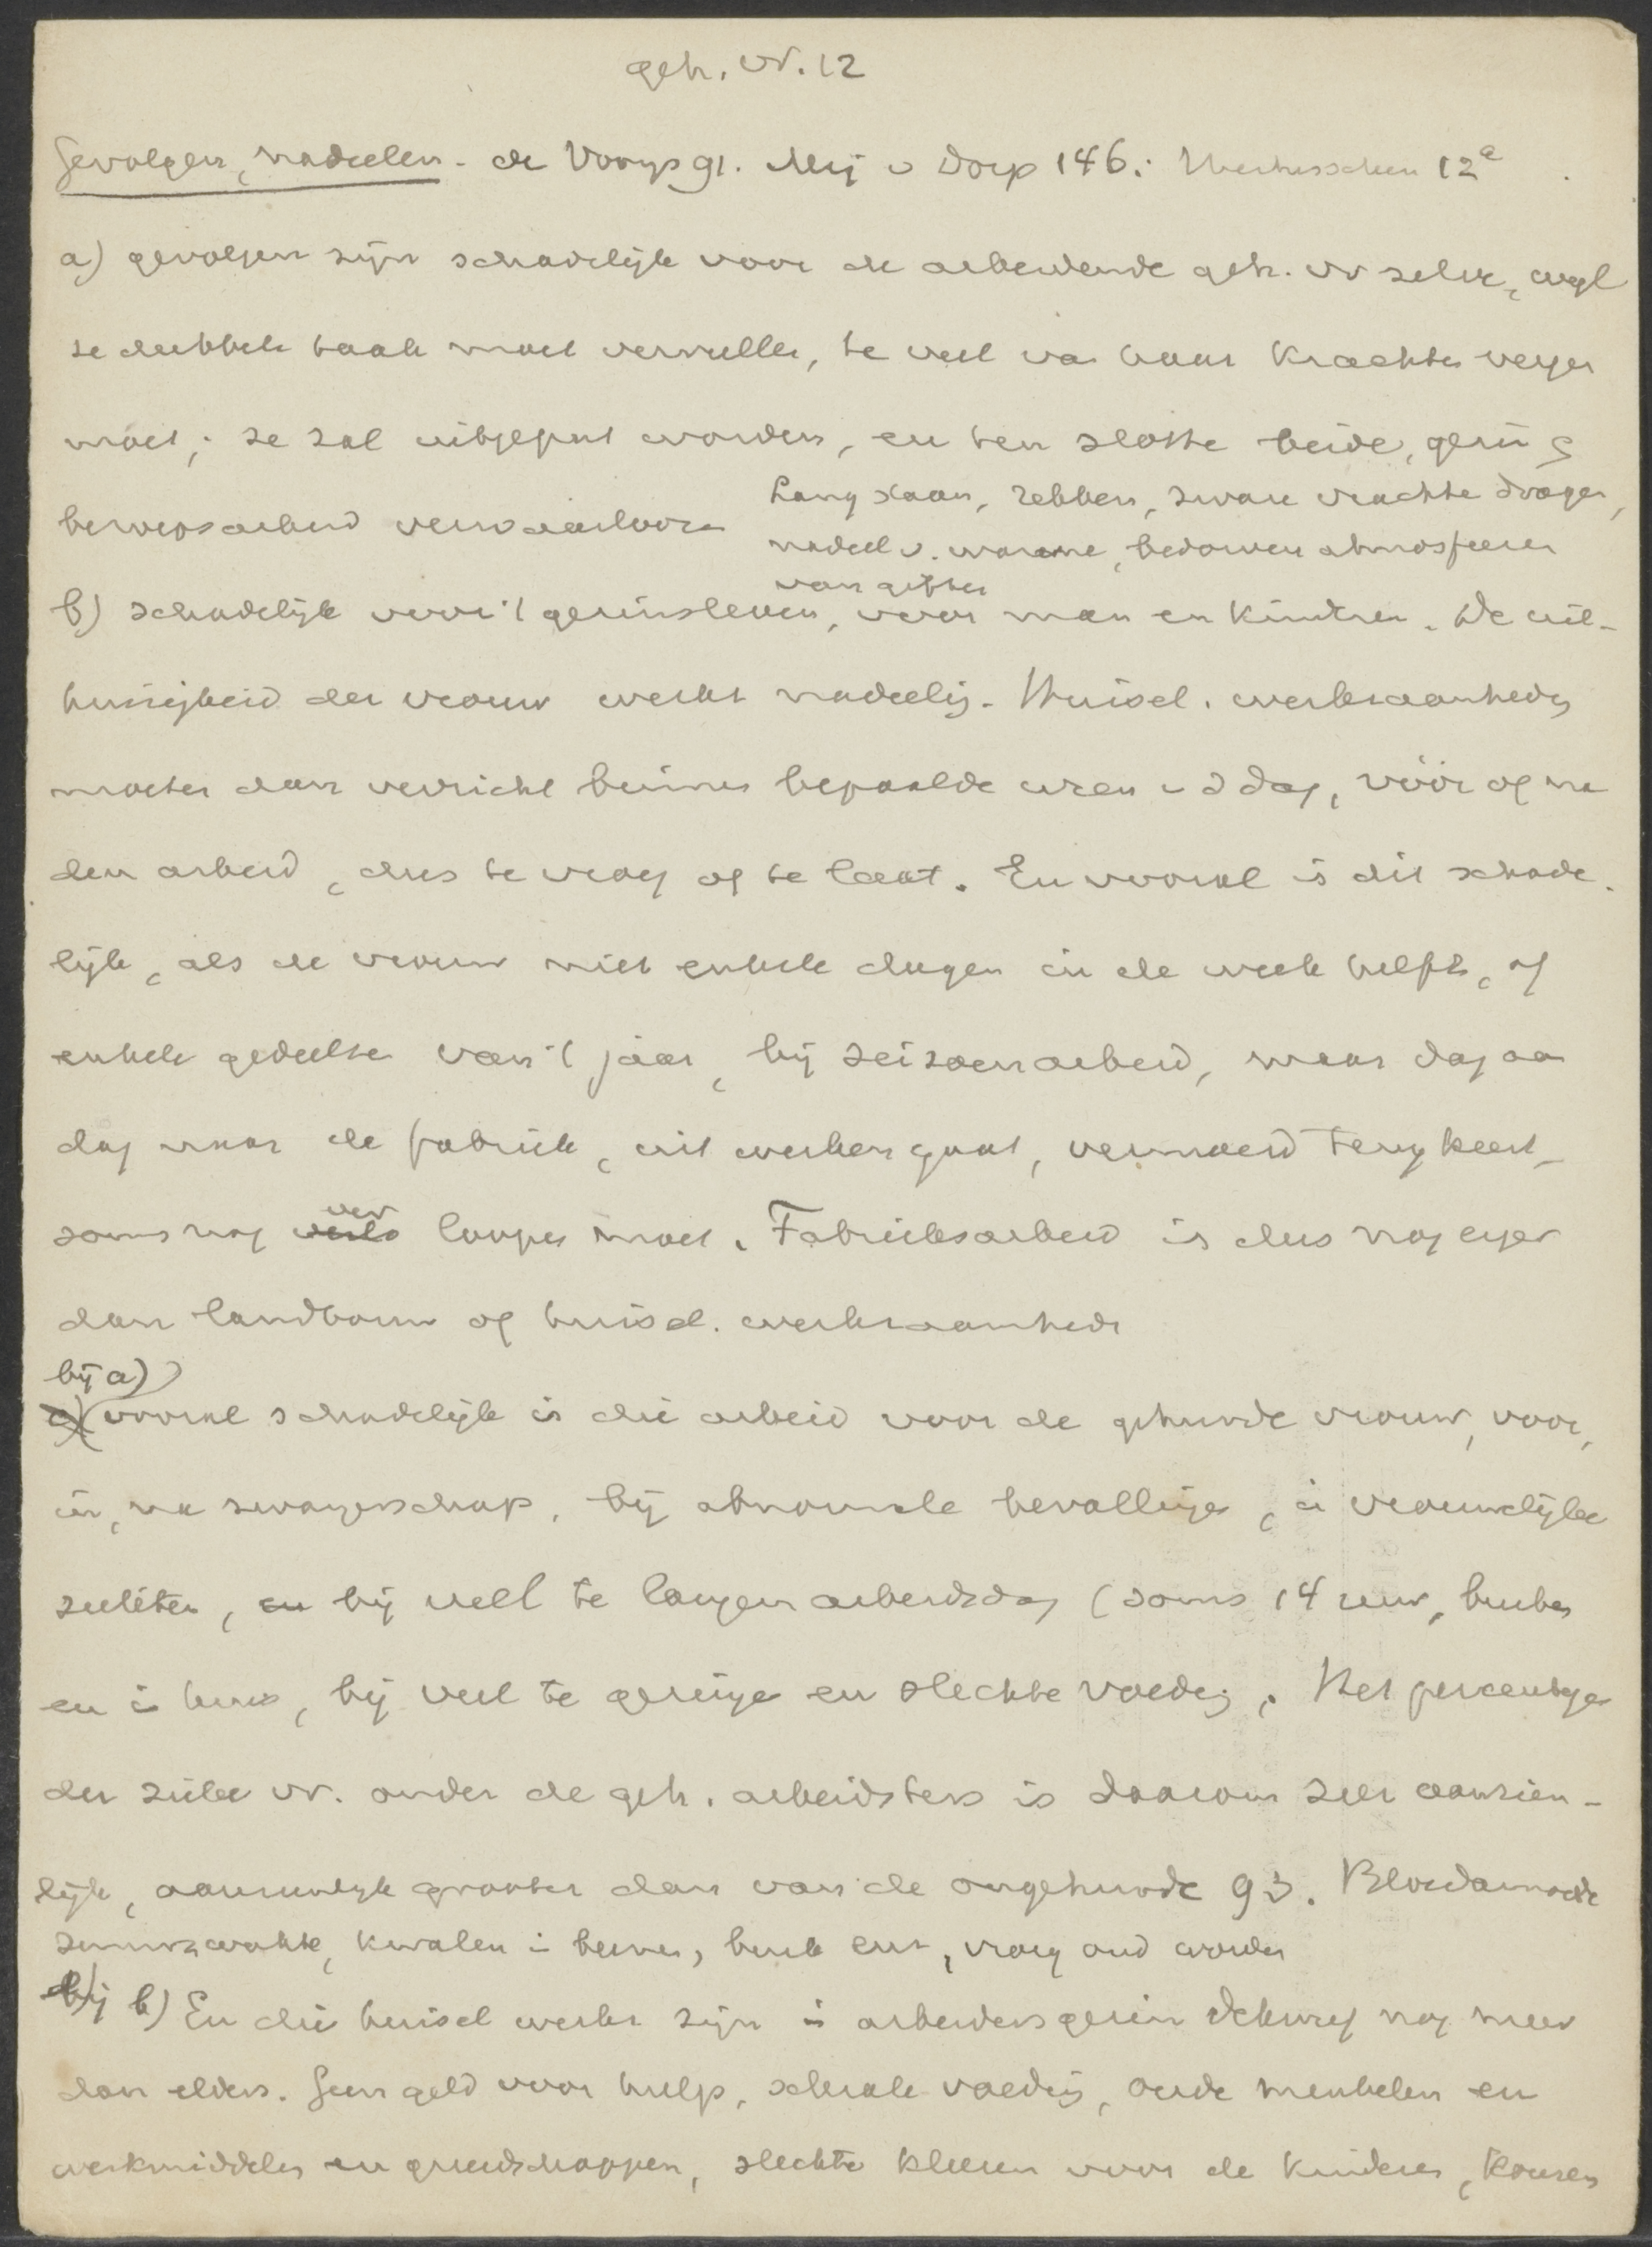 geh. vr. 12
Gevolgen, nadeelen - de Vooys 91. Mej v Dorp 146. 12a
a) gevolgen zijn schadelijk voor de arbeidende geh. vr zelve, wyl
ze dubbele taak moet vervullen, te veel van haar krachten vergen
moet; ze zal uitgeput worden, en ten slotte beide, gezin &
beroepsarbeid verwaarloozen
Lang staan, zware vrachten dragen,
nadeel v. warme, bedorven atmosfeeren
van giften
b) schadelijk voor 't gezinsleven, voor man en kindren. De uit-
huizigheid der vrouw werkt nadeelig. Huisel. werkzaamheden
moeten dan verricht binnen bepaalde uren v d dag, vóór of na
den arbeid, dus te vroeg of te laat. En vooral is dit schade-
lijk, als de vrouw niet enkele dagen in de week helpt, of
enkele gedeelten van 't jaar, bij seizoenarbeid, maar dag aan
dag naar de fabriek, uit werken gaat, vermoeid terugkeert,
soms nog ver loopen moet. Fabrieksarbeid is dus nog erger
dan landbouw of huisel. werkzaamheden
bij a)
vooral schadelijk is die arbeid voor de gehuwde vrouw, voor,
in, na zwangerschap, bij abnormale bevallingen, in vrouwelijke
ziekten, bij veel te langen arbeidsdag (soms 14 uur, buiten
en in huis, bij veel te geringe en slechte voeding. Het percentage
der zieke vr. onder de geh. arbeidsters is daarom zeer aanzien-
lijk, aanmerkelijk grooter dan van de ongehuwde 93. Bloedarmoede
zenuwzwakte, kwalen in beenen, buik enz, vroeg oud worden
bij b) En die huisel werken zijn in arbeidersgezin nog meer
dan elders. Geen geld voor hulp, schrale voeding, oude meubelen en
werkmiddelen en gereedschappen, slechte kleeren voor de kinderen, kousen